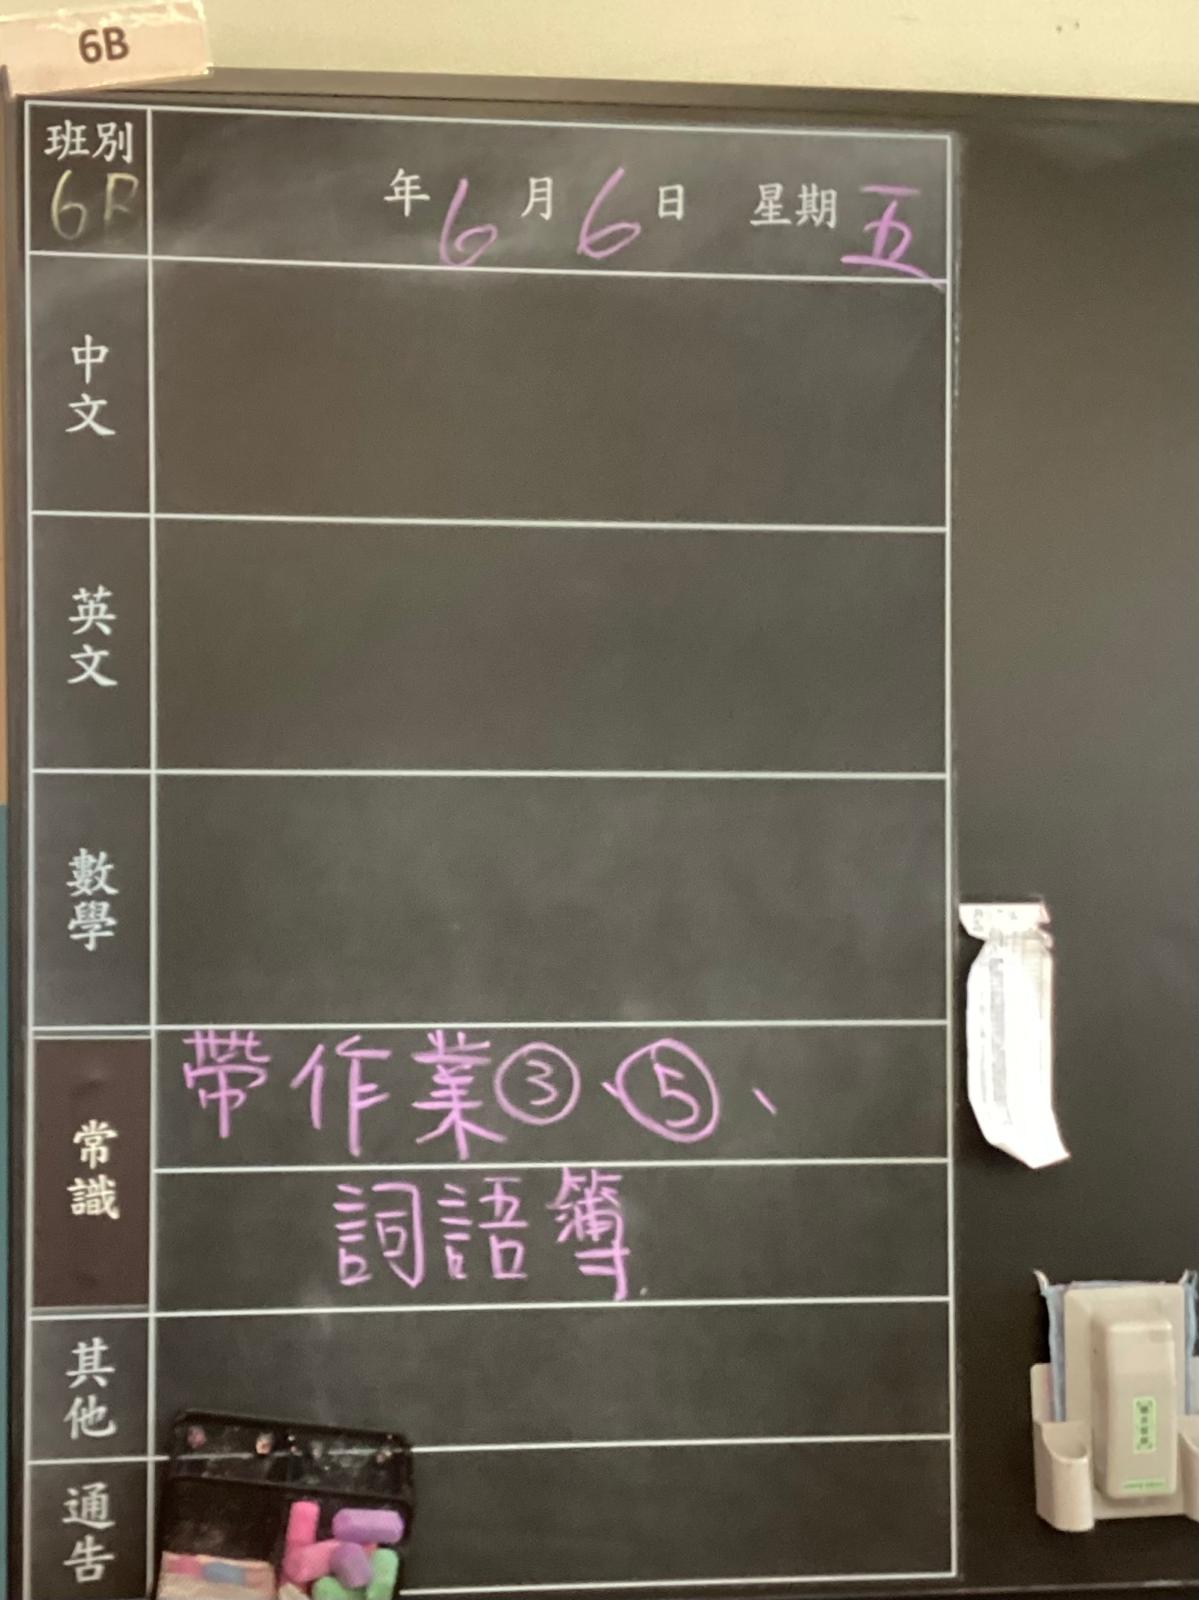 6B
班別
6B
年 6 月 6 日 星期 五
中文
英文
數學
常識
帶作業③、⑤、
詞語簿.
其他
通告